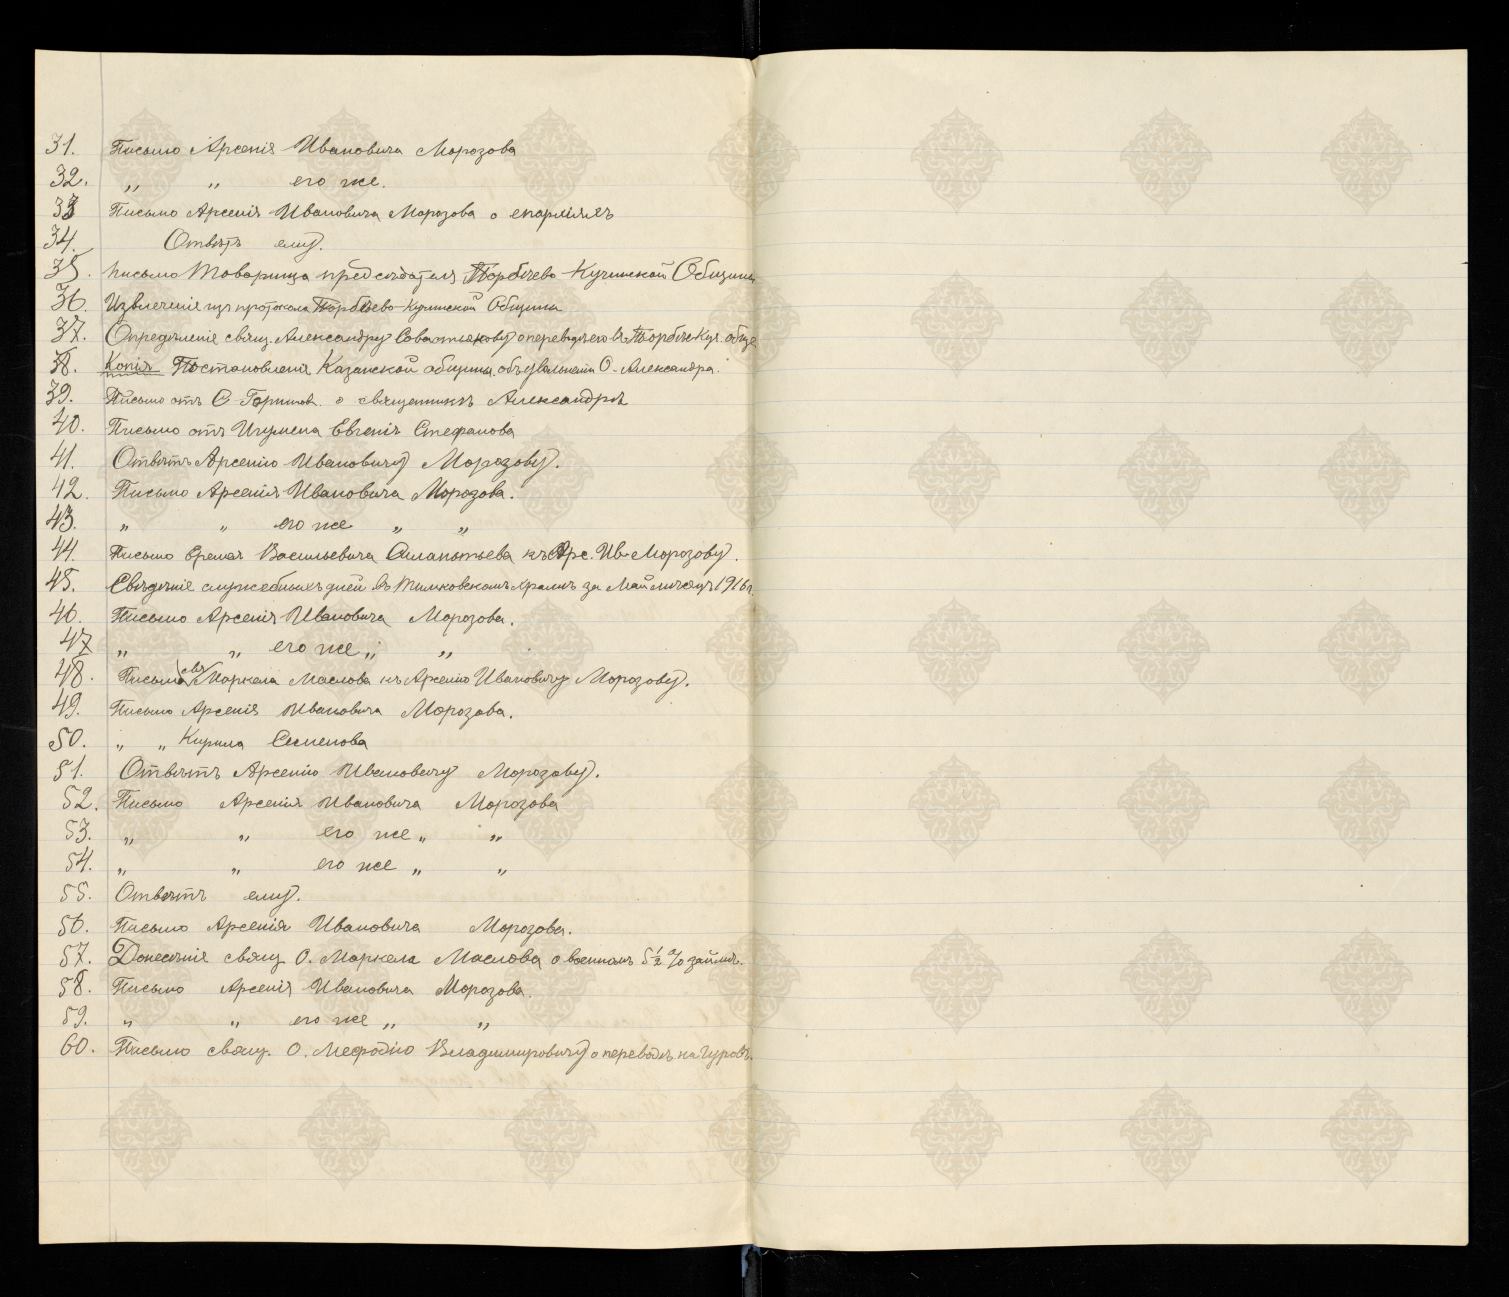 31. Письмо Арсенія Ивановича Морозова
32. „ „ его же.
33 Письмо Арсенія Ивановича Морозова о епархіяхъ
34. Отвѣтъ ему.
35. Письмо Товарища предсѣдателя Торбѣево-Кучинской Общины
36. Извлеченіе изъ протокола Торбѣево-Кучинской Общины
37. Опредѣленіе свящ. Александру о переводѣ его въ Торбѣ. Куч. общ.
38. Копія Постановленія Казанской общины объ увольненіи О. Александра.
39. Письмо отъ С. о священникѣ Александрѣ
40. Письмо отъ Игумена Евгенія Стефанова
41. Отвѣтъ Арсенію Ивановичу Морозову.
42. Письмо Арсенія Ивановича Морозова.
43. „ „ его же „ „
44. Письмо Васильевича къ Арс. Ив. Морозову.
45. Свѣдѣніе служебныхъ дней въ храмѣ за Май мѣсяцъ 1916 г.
46. Письмо Арсенія Ивановича Морозова.
47 „ „ его же „ „
48. Письмо свя Маркела Маслова къ Арсенію Ивановичу Морозову.
49. Письмо Арсенія Ивановича Морозова.
50. „ „ Кирила Семенова
51. Отвѣтъ Арсенію Ивановичу Морозову.
52. Письмо Арсенія Ивановича Морозова
53. „ „ его же „ „
54. „ „ его же „ „
55. Отвѣтъ ему.
56. Письмо Арсенія Ивановича Морозова.
57. Донесеніе свящ. О. Маркела Маслова о военномъ 5½ % займѣ.
58. Письмо Арсенія Ивановича Морозова.
59. „ „ его же „ „
60. Письмо свящ. О. Мефодію Владимировичу о переводѣ на